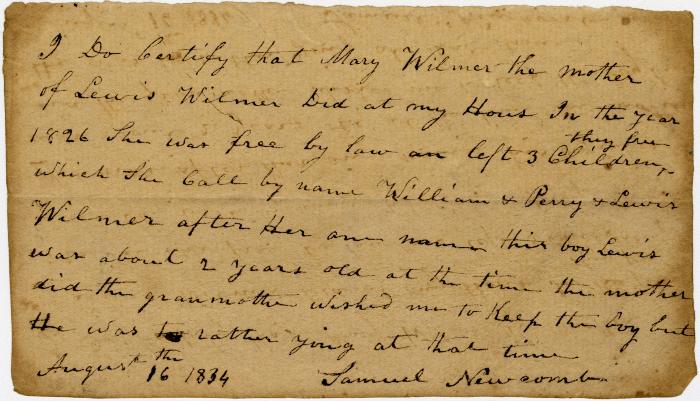 I Do Certify that Mary Wilmer the mother
of Lewis Wilmer Did at my Hous In the year
1826 She was free by law an left 3 Children, they free
which She Call by name William & Perry & Lewis
Wilmer after Her own name this boy Lewis
was about 2 years old at the time the mother
did the granmothe wished me to Keep the boy but
He was to rather yong at that time
August the 16 1834 Samuel Newcomb